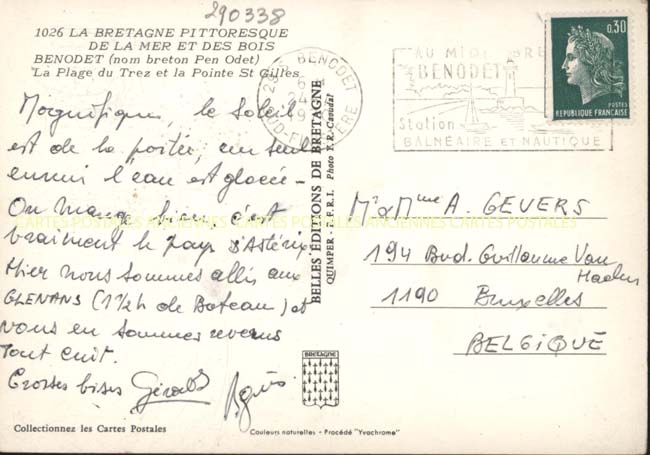 290338
1026 LA BRETAGNE PITTORESQUE
DE LA MER ET DES BOIS
BENODET (nom breton Pen Odet)
La Plage du Trez et la Pointe St Gilles
Magnifique, le Soleil
est de la partie, un seul
ennui l'eau est glacée -
On mange bien c'est
vraiment le pays d'Astérix
Hier nous sommes allés aux
GLENANS (1½h de Bateau) et
nous en sommes revenus
tout cuit.
Grosses bises Gérald Agnès
Collectionnez les Cartes Postales
BELLES ÉDITIONS DE BRETAGNE
QUIMPER - F.F.R.I. Photo Y.R.-Caoudal
BRETAGNE
Couleurs naturelles - Procédé "Yvachrome"
BENODET
SUD-FINISTERE
BENODET
Station
BALNÉAIRE et NAUTIQUE
0,30
POSTES
REPUBLIQUE FRANÇAISE
Mr & Mme A. GEVERS
194 Bvd. Guillaume Van
Haelen
1190 Bruxelles
BELGIQUE
CARTES POSTALES ANCIENNES CARTES POSTALES